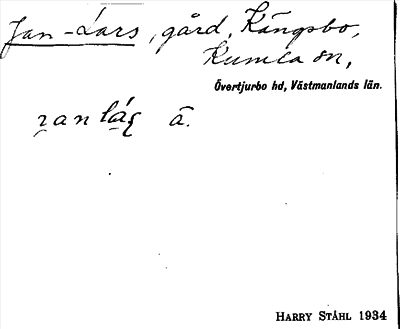 Jan-Lars, gård, Kängsbo,
Kumla sn,
Övertjurbo hd, Västmanlands län.
ʒan láʂ ā.
HARRY STÅHL 1934